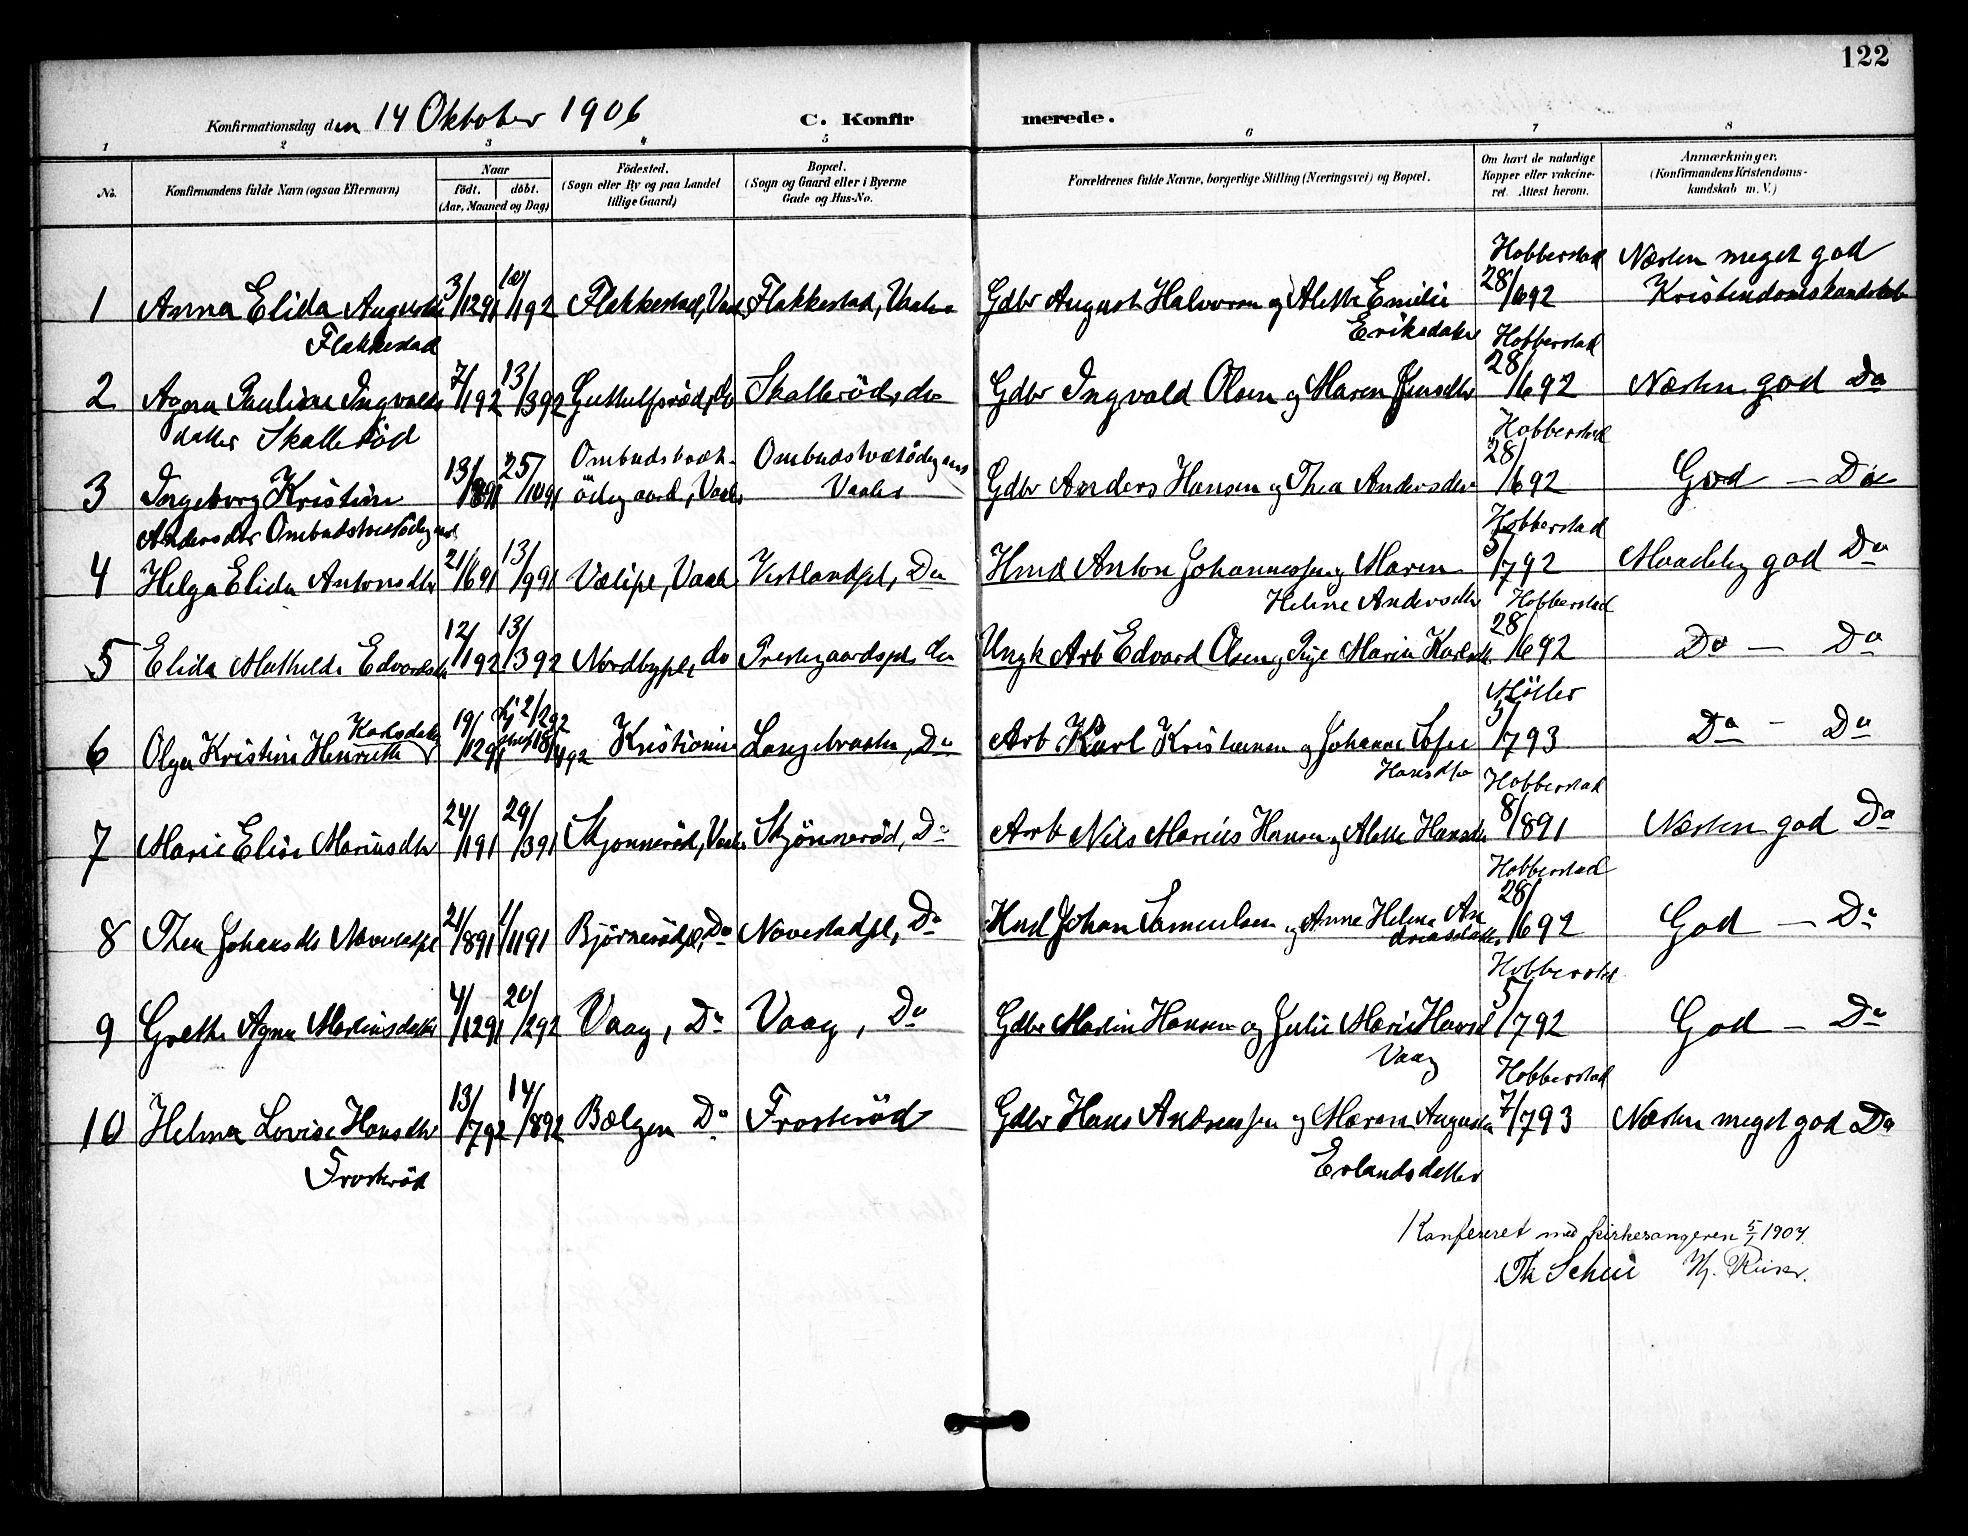 122
Konfirmationsdag den 14 Oktober 1906 C. Konfirmerede.
1 2 3 4 5 6 7 8
No. Konfirmandens fulde Navn (ogsaa Efternavn) Naar födt. döbt. (Aar, Maaned og Dag) Födested. (Sogn eller By og paa Landet tillige Gaard) Bopæl. (Sogn og Gaard eller i Byerne Gade og Hus-No. Forældrenes fulde Navne, borgerlige Stilling (Næringsvei) og Bopæl. Om havt de naturlige Kopper eller vakcineret. Attest herom. Anmærkninger. (Konfirmandens Kristendomskundskab m. V.)
1 Anna Elida Augusta 3/1291 10/192 Flakkestad, Vaaler Flakkestad, Vaaler Gdbr August Halvorsen og Alette Emilie Hobberstad 28/692 Næsten meget god Kristendomskundskab
Flakkestad Eriksdatter
2 Agna Pauline Ingvalds 7/192 13/392 Guthulfsröd, do Skalleröd, do Gdbr Ingvald Olsen og Maren Jensdtr Hobberstad 28/692 Næsten god Do
datter Skalleröd
3 Ingeborg Kristine 13/891 25/1091 Ombudstvedt-ödegaard, Vaaler Gdbr Anders Hansen og Thea Andersdtr Hobberstad 28/692 God — Do
Andersdtr
4 Helga Elida Antonsdtr 21/691 13/991 Vaaler Vestlandpl, Do Hmd Anton Johannessen og Maren Hobberstad 5/792 Maadelig god Do
Helene Andersdtr
5 Elida Mathilde Edvardsdtr 12/192 13/392 Nordbypl, do Prestegaardspl, do Ungk Arb Edvard Olsen og Pige Maria Karlsdtr Hobberstad 28/692 Do — Do
6 Olga Kristine Henriette Karlsdatter 19/1291 Kristiania Langebraaten, Do Arb. Karl Kristiansen og Johanne Sofie Möller 5/793 Do — Do
Hansdtr
7 Marie Elise Mariusdtr 24/191 29/391 Skjönneröd, Vaaler Skjönneröd, Do Arb Nils Marius Hansen og Alette Hansdtr Hobberstad 8/891 Næsten god Do
8 Thea Johansdtr Navestadpl 21/891 1/1191 Björnerödpl, Do Navestadpl, Do Hmd Johan Samuelsen og Anne Helene Andreasdatter Hobberstad 28/692 God — Do
9 Grethe Agna Martinsdatter 4/1291 20/292 Vaag, Do Vaag, Do Gdbr Martin Hansen og Julie Marie Hansd Hobberstad 5/792 God — Do
Vaag
10 Helma Lovise Hansdtr 13/792 14/892 Bælgen Do Frosteröd Gdbr Hans Andreassen og Maren Augusta Hobberstad 7/793 Næsten meget god Do
Frosteröd Erlandsdatter
Konfereret med kirkesangeren 5/1 1907.
Th Scheie